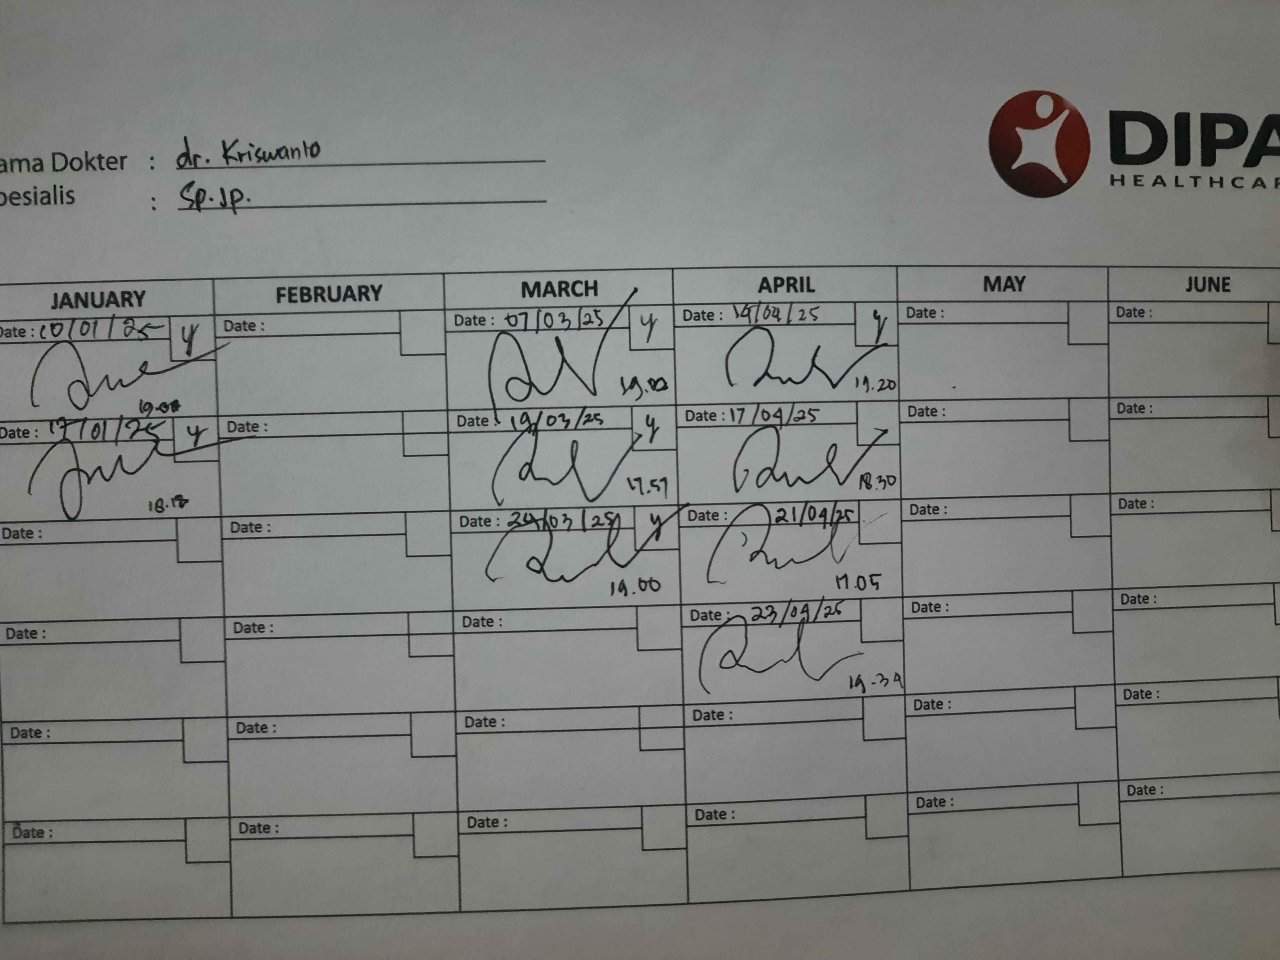 DIPA
HEALTHCAR
ama Dokter : dr. Kriswanto
pesialis : Sp.Jp.
JANUARY FEBRUARY MARCH APRIL MAY JUNE
Date : 10/01/25 y Date : Date : 07/03/25 y Date : 14/04/25 y Date : Date :
19.00 19.20
Date : 17/01/25 y Date : Date : 19/03/25 y Date : 17/04/25 Date : Date :
18.18 17.57 18.30
Date : Date : Date : 24/03/25 y Date : 21/04/25 Date : Date :
19.00 17.05
Date : Date : Date : Date : 23/04/25 Date : Date :
19.34
Date : Date : Date : Date : Date : Date :
Date : Date : Date : Date : Date : Date :